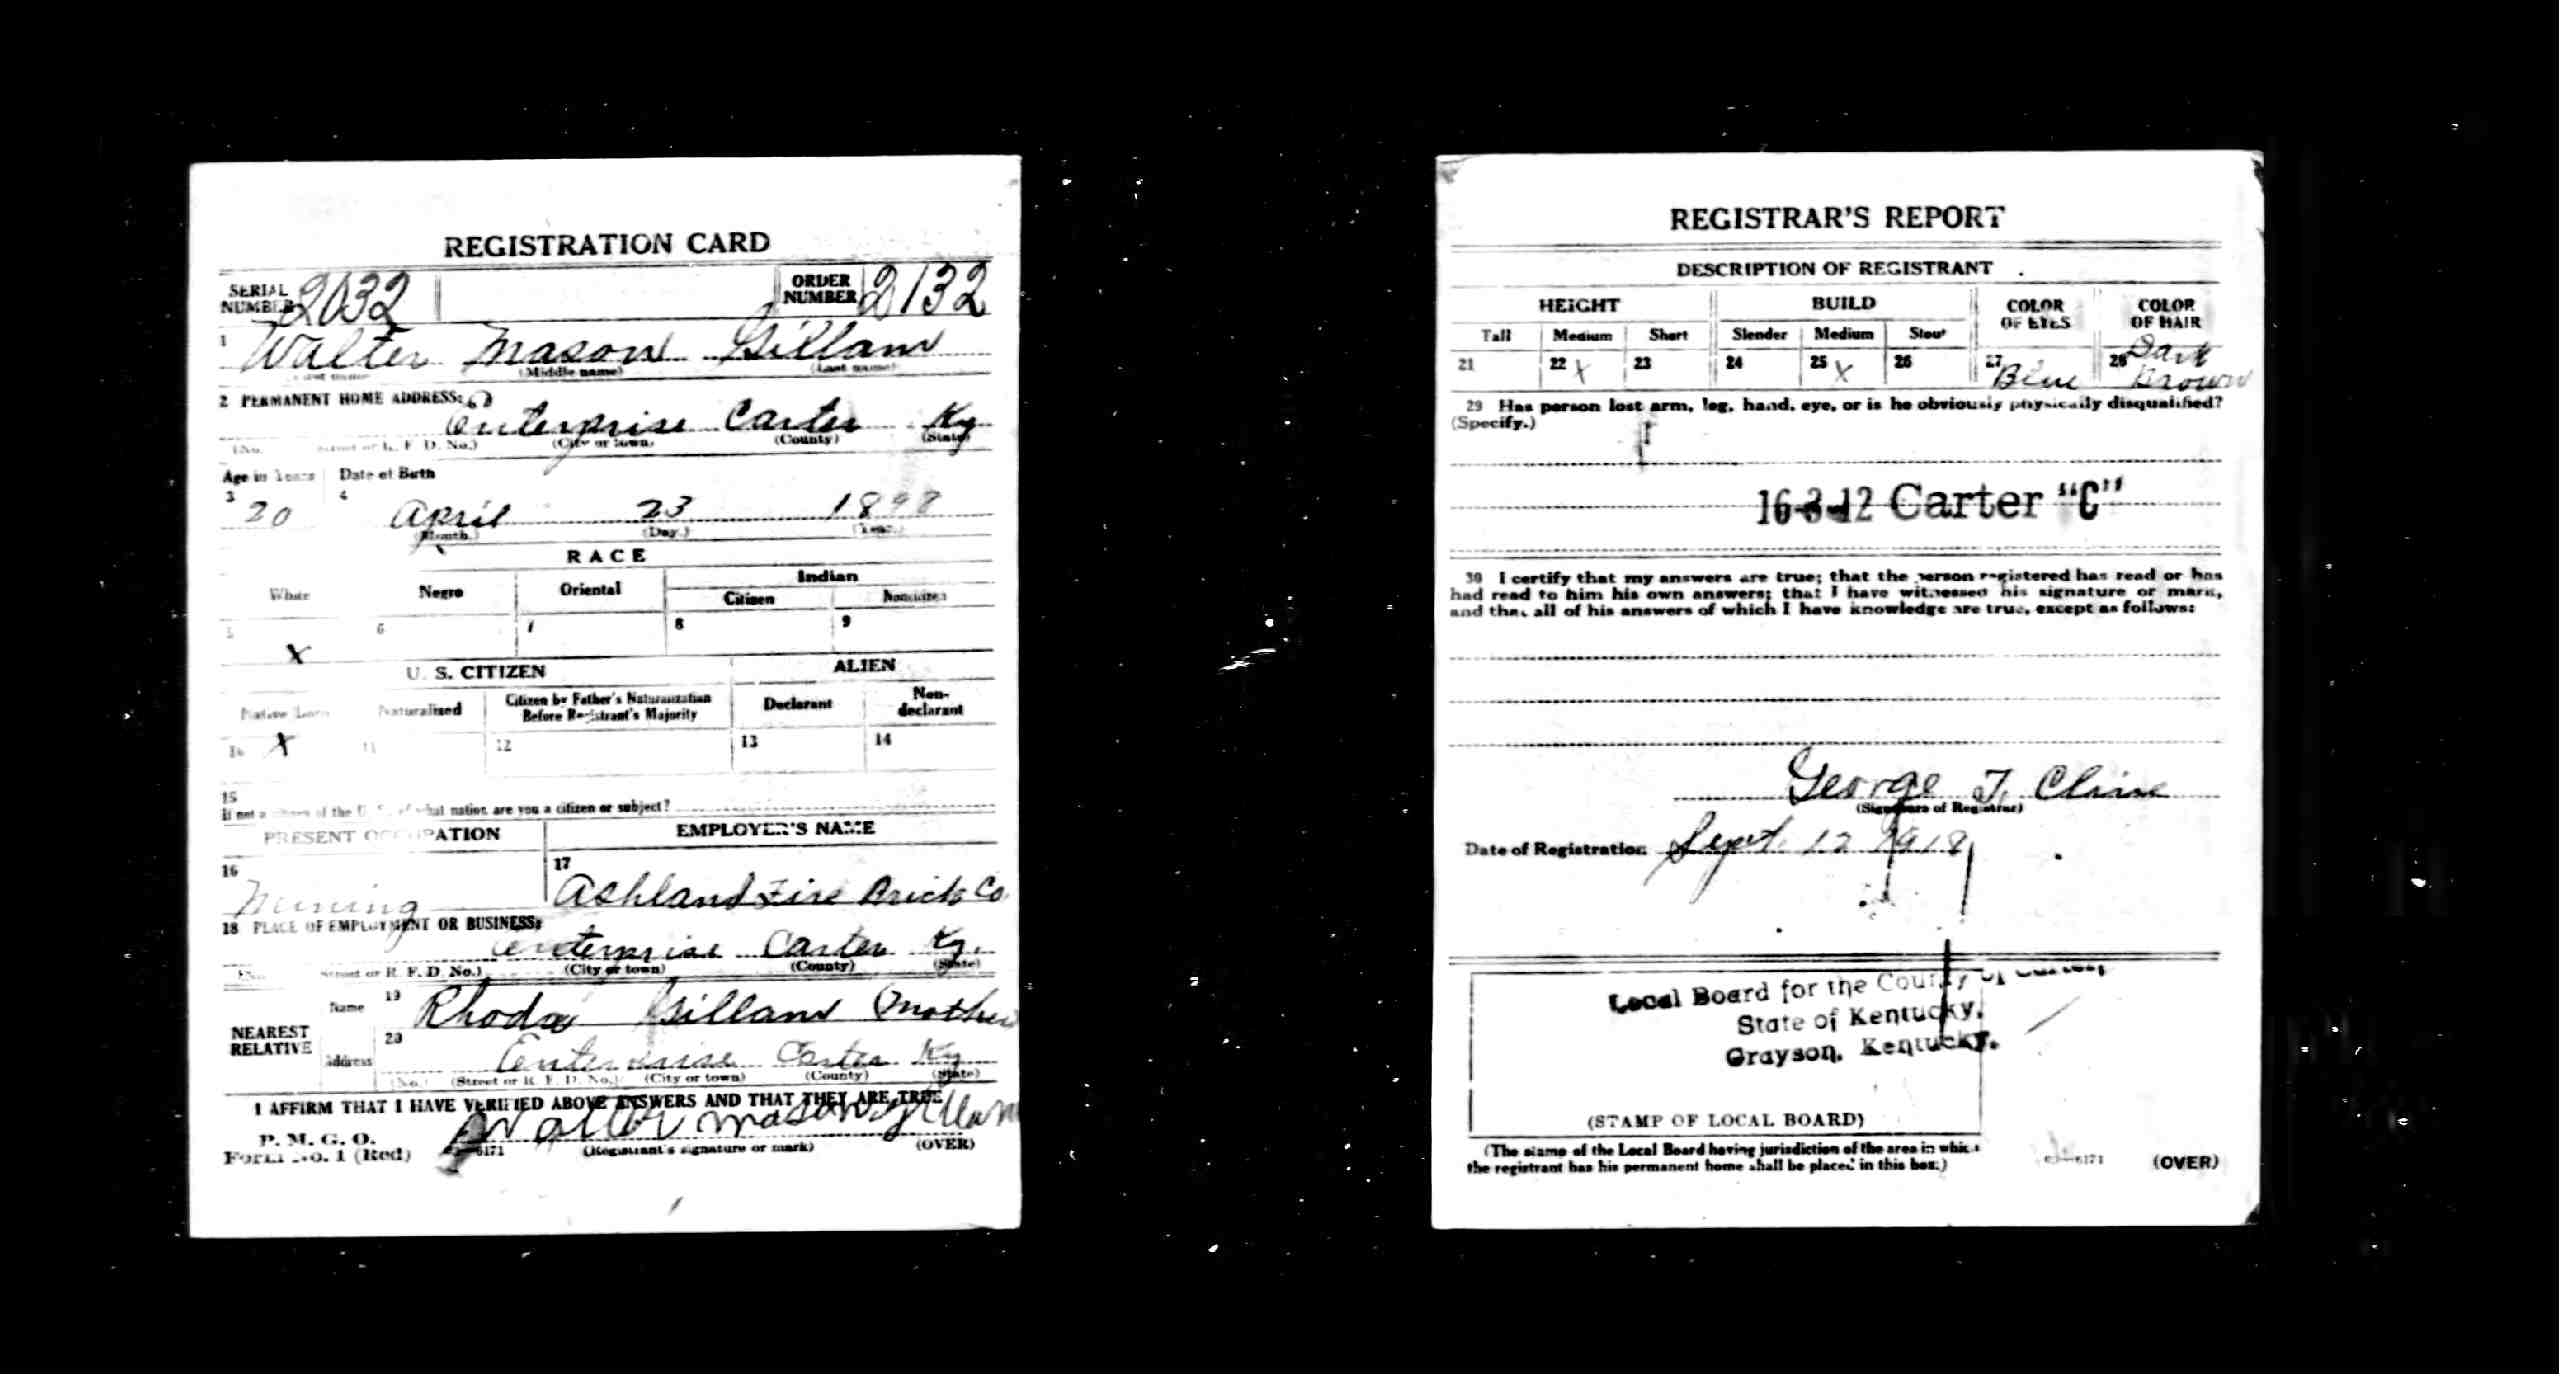 REGISTRATION CARD
SERIAL NUMBER 2032
ORDER NUMBER 2132
1 Walter Mason Gillam
(Middle name) (Last name)
2 PERMANENT HOME ADDRESS:
Enterprise Carter Ky
(No.) (Street or R. F. D. No.) (City or town) (County) (State)
Age in Years Date of Birth
3 20 4 April 23 1898
(Month.) (Day.) (Year.)
RACE
White Negro Oriental Indian
Citizen Noncitizen
5 X 6 7 8 9
U. S. CITIZEN ALIEN
Native Born Naturalized Citizen by Father's Naturalization Before Registrant's Majority Declarant Non-declarant
10 X 11 12 13 14
15
If not a citizen of the U. S., of what nation are you a citizen or subject?
PRESENT OCCUPATION EMPLOYER'S NAME
16 Mining 17 Ashland Fire Brick Co
18 PLACE OF EMPLOYMENT OR BUSINESS:
Enterprise Carter Ky.
(No.) (Street or R. F. D. No.) (City or town) (County) (State)
NEAREST RELATIVE
Name 19 Rhoda Gillam (Mother
Address 20 Enterprise Carter Ky
(No.) (Street or R. F. D. No.) (City or town) (County) (State)
I AFFIRM THAT I HAVE VERIFIED ABOVE ANSWERS AND THAT THEY ARE TRUE
P. M. G. O.
Form No. 1 (Red)
Walter Mason Gillam
6171 (Registrant's signature or mark) (OVER)
REGISTRAR'S REPORT
DESCRIPTION OF REGISTRANT
HEIGHT BUILD COLOR OF EYES COLOR OF HAIR
Tall Medium Short Slender Medium Stout
21 22 X 23 24 25 X 26 27 Blue 28 Dark Brown
29 Has person lost arm, leg, hand, eye, or is he obviously physically disqualified?
(Specify.)
16-3-12 Carter "C"
30 I certify that my answers are true; that the person registered has read or has
had read to him his own answers; that I have witnessed his signature or mark,
and that all of his answers of which I have knowledge are true, except as follows:
George T. Cline
(Signature of Registrar)
Date of Registration Sept. 12 1918
Local Board for the County of Carter,
State of Kentucky,
Grayson, Kentucky.
(STAMP OF LOCAL BOARD)
(The stamp of the Local Board having jurisdiction of the area in which
the registrant has his permanent home shall be placed in this box.)
6171 (OVER)